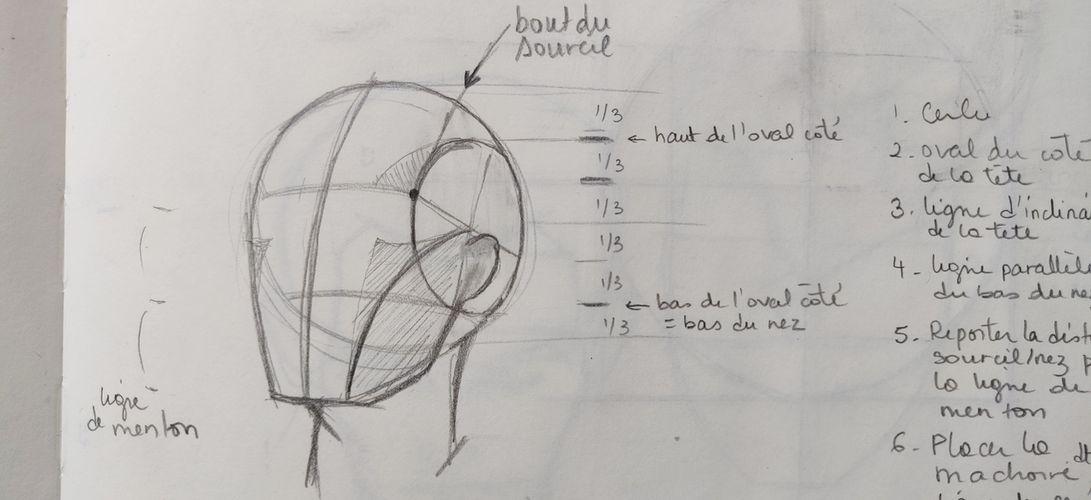 bout du
sourcil
1/3
← haut de l'oval côté
1/3
1/3
1/3
1/3
← bas de l'oval côté
1/3 = bas du nez
ligne
de menton
1. Cercle
2. oval du coté
de la tête
3. ligne d'inclina
de la tete
4 - ligne parallèle
du bas du ne
5. Reporter la dist
sourcil/nez p
la ligne du
menton
6 - Placer la
machoire